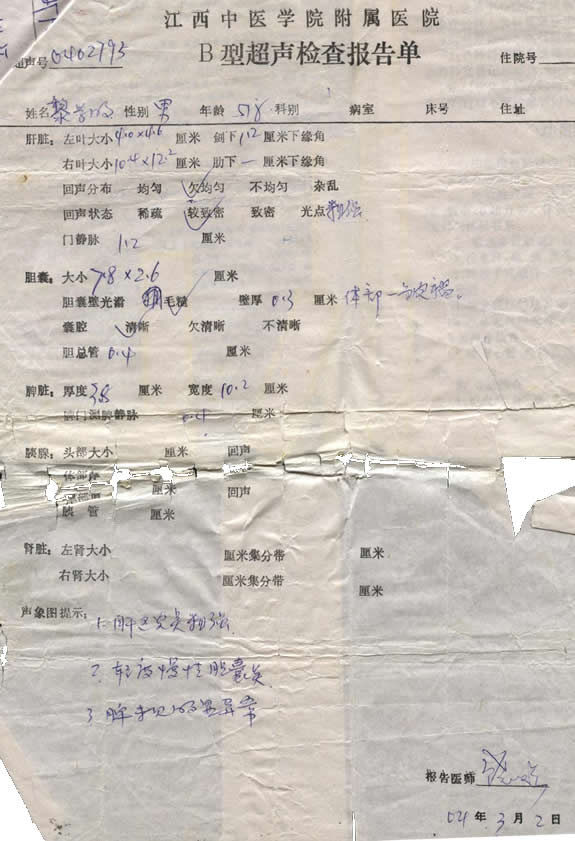 江西中医学院附属医院
B型超声检查报告单
超声号 0402795 住院号
姓名 性别 男 年龄 科别 病室 床号 住址
肝脏：左叶大小 厘米 剑下 1.2 厘米下缘角
右叶大小 10.4×12.2 厘米 肋下 — 厘米下缘角
回声分布 均匀 欠均匀 不均匀 杂乱
回声状态 稀疏 较致密 致密 光点 粗强
门静脉 1.2 厘米
胆囊：大小 7.8×2.6 厘米
胆囊壁光滑 毛糙 壁厚 0.3 厘米 体部
囊腔 清晰 欠清晰 不清晰
胆总管 0.4 厘米
脾脏：厚度 厘米 宽度 10.2 厘米
脾门测脾静脉 0.4 厘米
胰腺：头部大小 厘米 回声
厘米 回声
胰管 厘米
肾脏：左肾大小 厘米集分带 厘米
右肾大小 厘米集分带 厘米
声象图提示：1. 肝区光点粗强
2. 轻度慢性胆囊炎
3. 脾未见明显异常
报告医师
04年3月2日